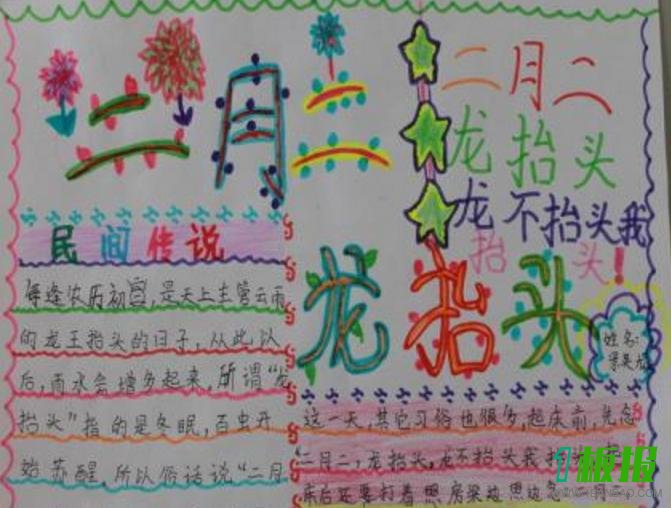 二月二
二月二
龙抬头
龙不抬头我
抬头!
龙抬头
姓名:
民间传说
每逢农历初, 是天上主管云雨
的龙王抬头的日子, 从此以
后, 雨水会增多起来, 所谓“龙
抬头”指的是冬眠, 百虫开
始苏醒, 所以俗话说“二月
这一天, 其它习俗也很多, 起床前, 先念
“二月二, 龙抬头, 龙不抬头我抬头
床后还要打着照房梁边思边念
1板报